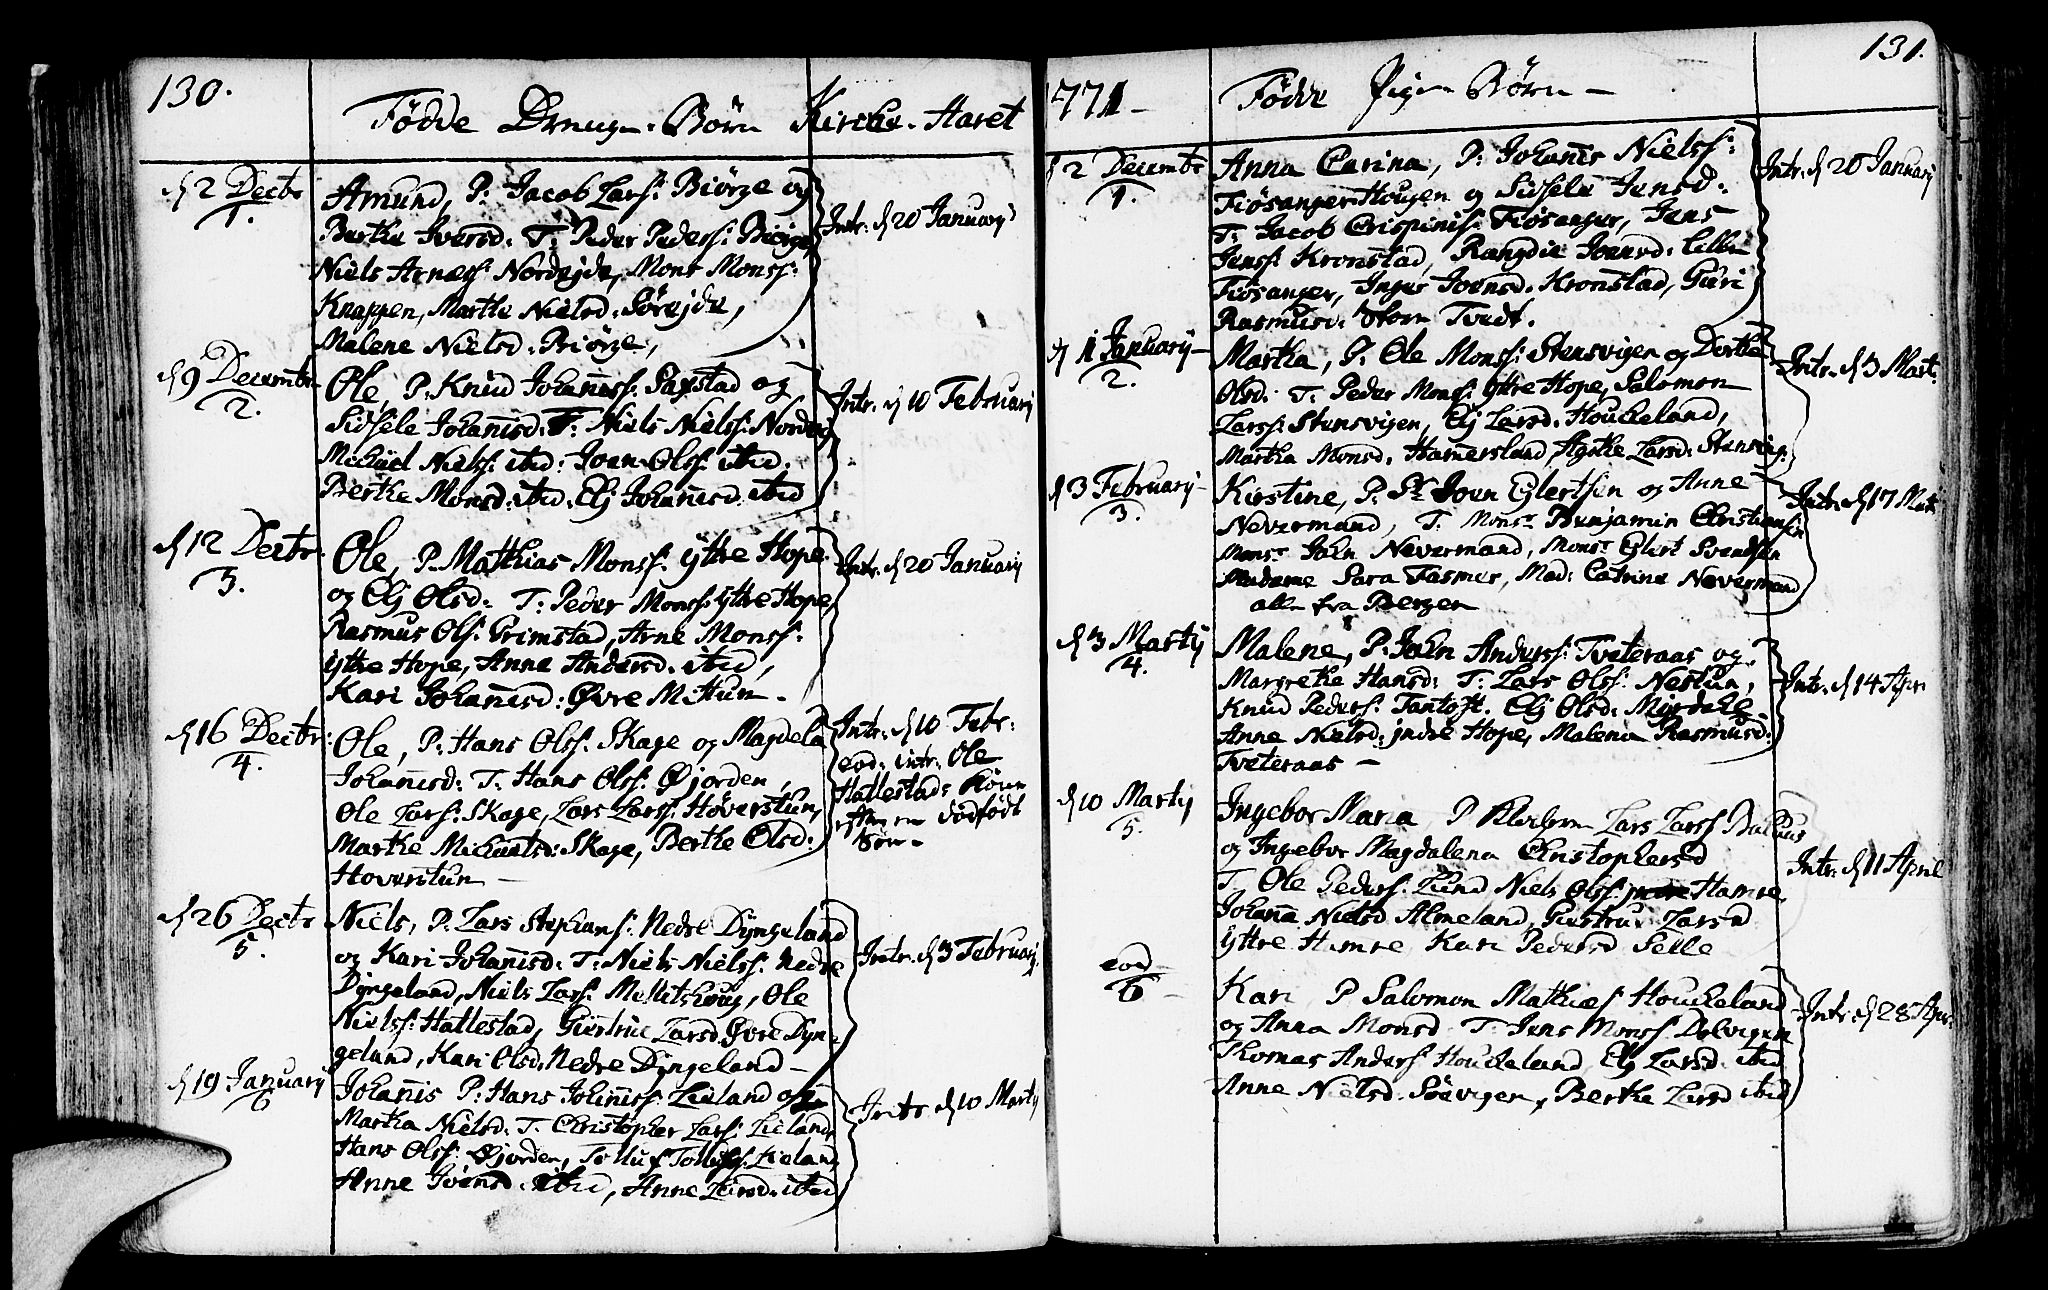 130.
Fødde Drenge-Børn Kirche-Aaret
d 2 Decbr
1.
Amund, P: Jacob Lars: Biørge og
Berthe Iversd: T: Peder Peders: Biørge
Niels Arness: Nordejde, Mons Monss:
Knappen, Marthe Nielsd: Sørejde,
Malene Nielsd: Biørge,
Intr: d 20 January
d 9 Decembr
2.
Ole, P: Knud Johaness: Saxstad og
Sidsele Johanisd: T: Niels Nielss: Nordeg
Michael Nielss: ibid: Joen Olss: ibid:
Berthe Monsd: ibid: Elj Johanisd: ibid
Intr: d 10 February
d 12 Decbr
3.
Ole, P: Mathias Monss: Ythre Hope
og Elj Olsd: T: Peder Monss: Ythre Hope
Rasmus Olss: Grimstad, Arne Monss:
Ythre Hope, Anne Andersd: ibid,
Kari Johanisd: Øvre M:Hun -
Intr: d 20 January
d 16 Decbr:
4.
Ole, P: Hans Olss: Skage og Magdela
Johanisd: T: Hans Olss: Øjorden,
Ole Larss: Skage, Lars Larss: Høverstun,
Marthe Michaelsd: Skage, Berthe Olsd:
Hoverstun -
Intr: d 10 Febr:
eod: intr: Ole
Hallestads Kone
efter en dødfødt
Søn -
d 26 Decbr
5.
Niels, P: Lars Stephans: Nedre Dyngeland
og Kari Johanisd: T: Niels Nielss: Nedre
Dyngeland, Niels Lars: Mellitshoug, Ole
Nielss: Hallestad, Giertrue Larsd: Øvre Dyn-
geland, Kari Olsd: Nedre Dyngeland -
Intr: d 3 February
d 19 January
6
Johanis P: Hans Johniss: Lieland og
Martha Nielsd: T: Christopher Lars: Lieland,
Hans Olss: Øjorden, Tolluf Tollefss: Lieland
Anne Iversd: ibid, Anne Larsd: ibid
Intr: d 10 Marty
1771 -
Fødde Pige-Børn -
131.
d 2 Decembr
1.
Anna Carina, P: Johanis Nielss:
FiøsangerHougen og Sidsele Jensd:
T: Jacob Crispinis: Fiøsanger, Jens
Jenss: Kronstad, Rangdie Joensd: Lille
Fiøsanger, Inger Joensd: Kronstad, Guri
Rasmusd: Store Tvedt.
Intr: d 20 January
d 1 January -
2.
Martha, P: Ole Monss: Stensvigen og Dorthe
Olsd: T: Peder Monss: Ythre Hope, Salomon
Larss: Stensvigen, Elj Larsd: Houcheland,
Martha Monsd: Hamersland, Agthe Larsd: Stensvig:
Intr: d 3 Mart:
d 3 February -
3.
Kirstine, P: Sr Joen Eylertsen og Anne
Nevermand, T: Monsr Benjamin Christiansen
Monsr John Nevermand, Monsr Eylert Svendsen
Madame Sara Fasmer, Mad: Catrine Nevermand
alle fra Bergen
Intr: d 17 Mart
d 3 Marty
4.
Malene, P: John Anderss: Tveteraas og
Margrethe Hansd: T: Lars Olss: Nestun,
Knud Peders: Fantoft. Elj Olsd: Mjrdale
Anne Nielsd: jndre Hope, Malena Rasmusd:
Tveteraas -
Intr: d 14 Apri
d 10 Marty
5.
Ingebor Maria P Lars Larss
og Ingebor Magdalena Christophersd
T. Ole Peders: Lund Niels Olss: Hamre,
Johana Nielsd Almeland, Giertrue Larsd
Yttre Hamre Kari Pedersd Selle
Intr: d 11 April
eod
6 -
Kari P Salomon Mathiæs Houcheland
og Anna Monsd T Jens Monss: Dolvigen
Thomas Anders: Houcheland, Elj Larsd: ibid
Anne Nielsd: Søevigen, Berthe Larsd ibid
Intr: d 28 Apr: